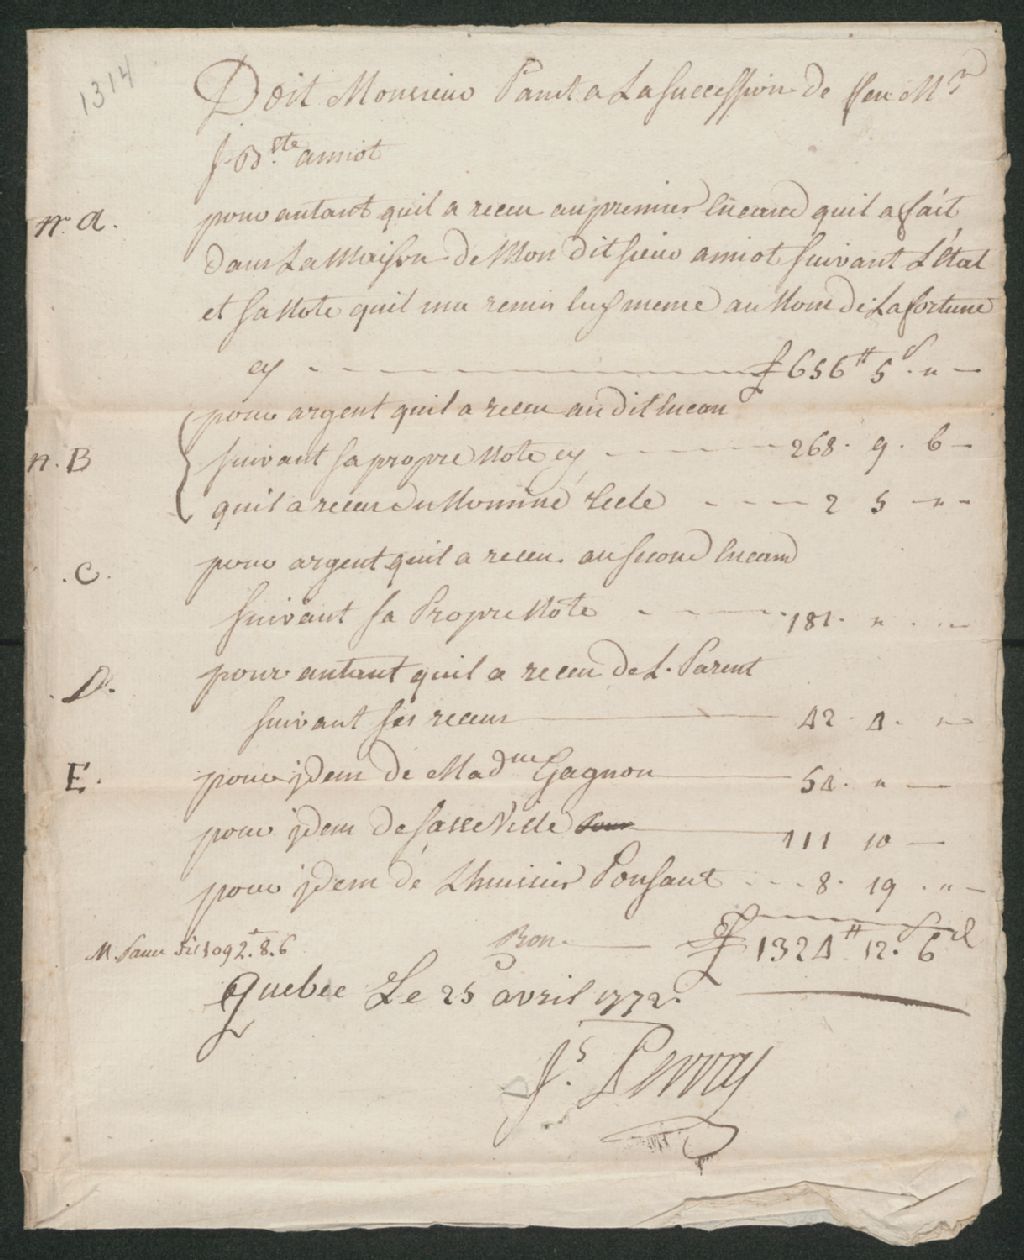 1314
Doit Monsieur Panet a La Succession de feu Mr
J Bste amiot
nº a. pour autant quil a receu au premier Encand quil a fait
dans La Maison de Mon dit Sieur amiot Suivant L'état
et Sa Note quil ma remis luy meme au Nom de Lafortune
cy - - - £ 656 ₶ 5 s. "
pour argent quil a receu au dit Encan
n. B Suivant Sa propre Note cy - - - 268. 9. 6
quil a receu du Nommé - - - 2 5 " "
.C. pour argent quil a receu. au Second Encand
Suivant Sa Propre Note - - - 181. "
D. pour autant quil a receu de L. Parent
Suivant Ses receus 42. 4. "
E. pour ydem de Madme Gagnon 54. "
pour ydem de Sasseville 111 10
pour ydem de Lhuissier Ponsant - - - 8. 19. "
M. Panet 1092.8.6 Bon £ 1324 ₶ 12 s. 6 d
Quebec Le 25 avril 1772.
Js. Perray